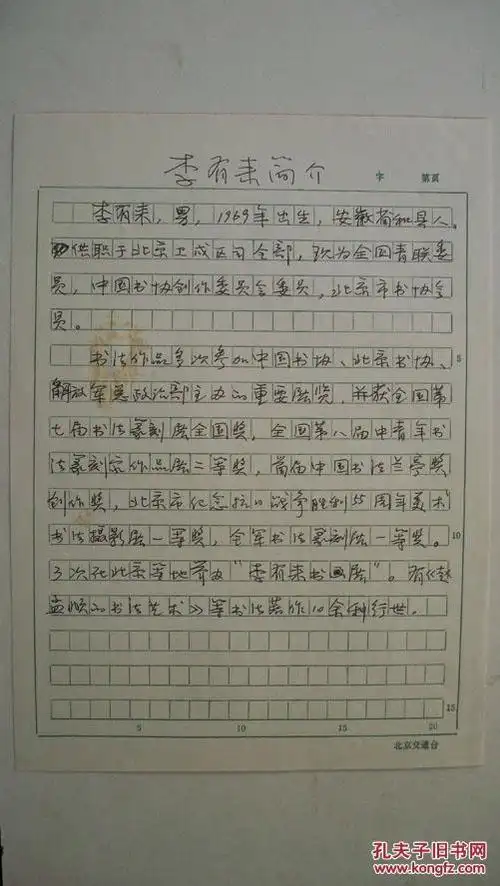 李有来简介
字 第 页
李有来，男，1969年出生，安徽省和县人。
供职于北京卫戍区司令部，现为全国青联委
员，中国书协创作委员会委员，北京市书协会
员。
书法作品多次参加中国书协、北京书协、
5
解放军总政治部主办的重要展览，并获全国第
七届书法篆刻展全国奖，全国第八届中青年书
法篆刻家作品展二等奖，首届中国书法兰亭奖
创作奖，北京市纪念抗日战争胜利55周年美术
书法摄影展一等奖，全军书法篆刻展一等奖。
10
3次在北京等地举办“李有来书画展”。有《赵
孟頫的书法艺术》等书法著作10余种行世。
15
5 10 15 20
北京交通台
孔夫子旧书网
kongfz.com